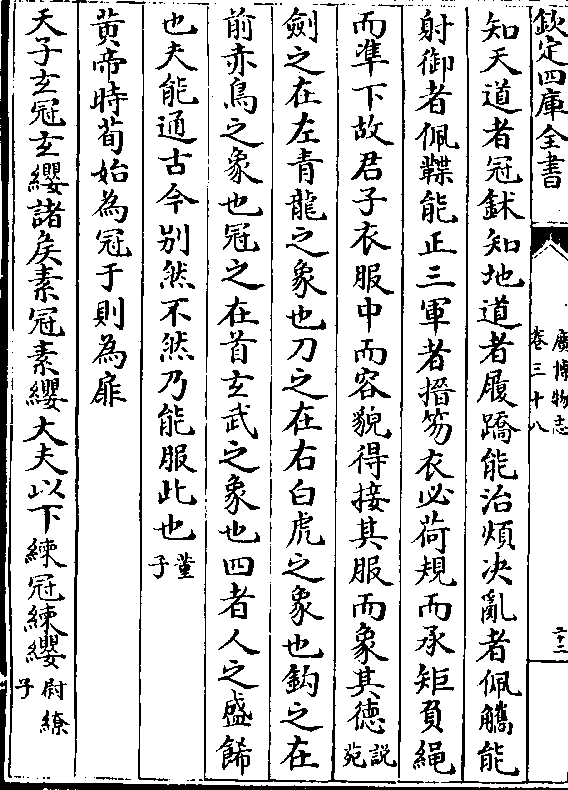 欽定四庫全書
廣博物志
卷三十八
二十二
知天道者冠鉥知地道者履蹻能治煩决亂者佩觿能
射御者佩韘能正三軍者搢笏衣必荷規而承矩負繩
而準下故君子衣服中而容貌得接其服而象其德說苑
劍之在左青龍之象也刀之在右白虎之象也鈎之在
前赤鳥之象也冠之在首玄武之象也四者人之盛餙
也夫能通古今别然不然乃能服此也董子
黄帝時荀始為冠于則為扉
天子玄冠玄纓諸矦素冠素纓大夫以下練冠練纓尉繚子